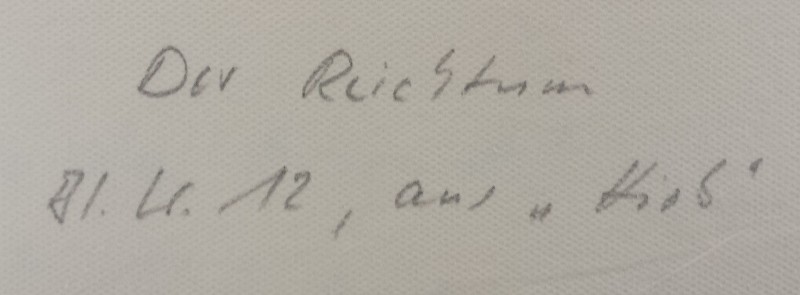 Der Reichtum
Bl. Nr. 12, aus „Hiob“